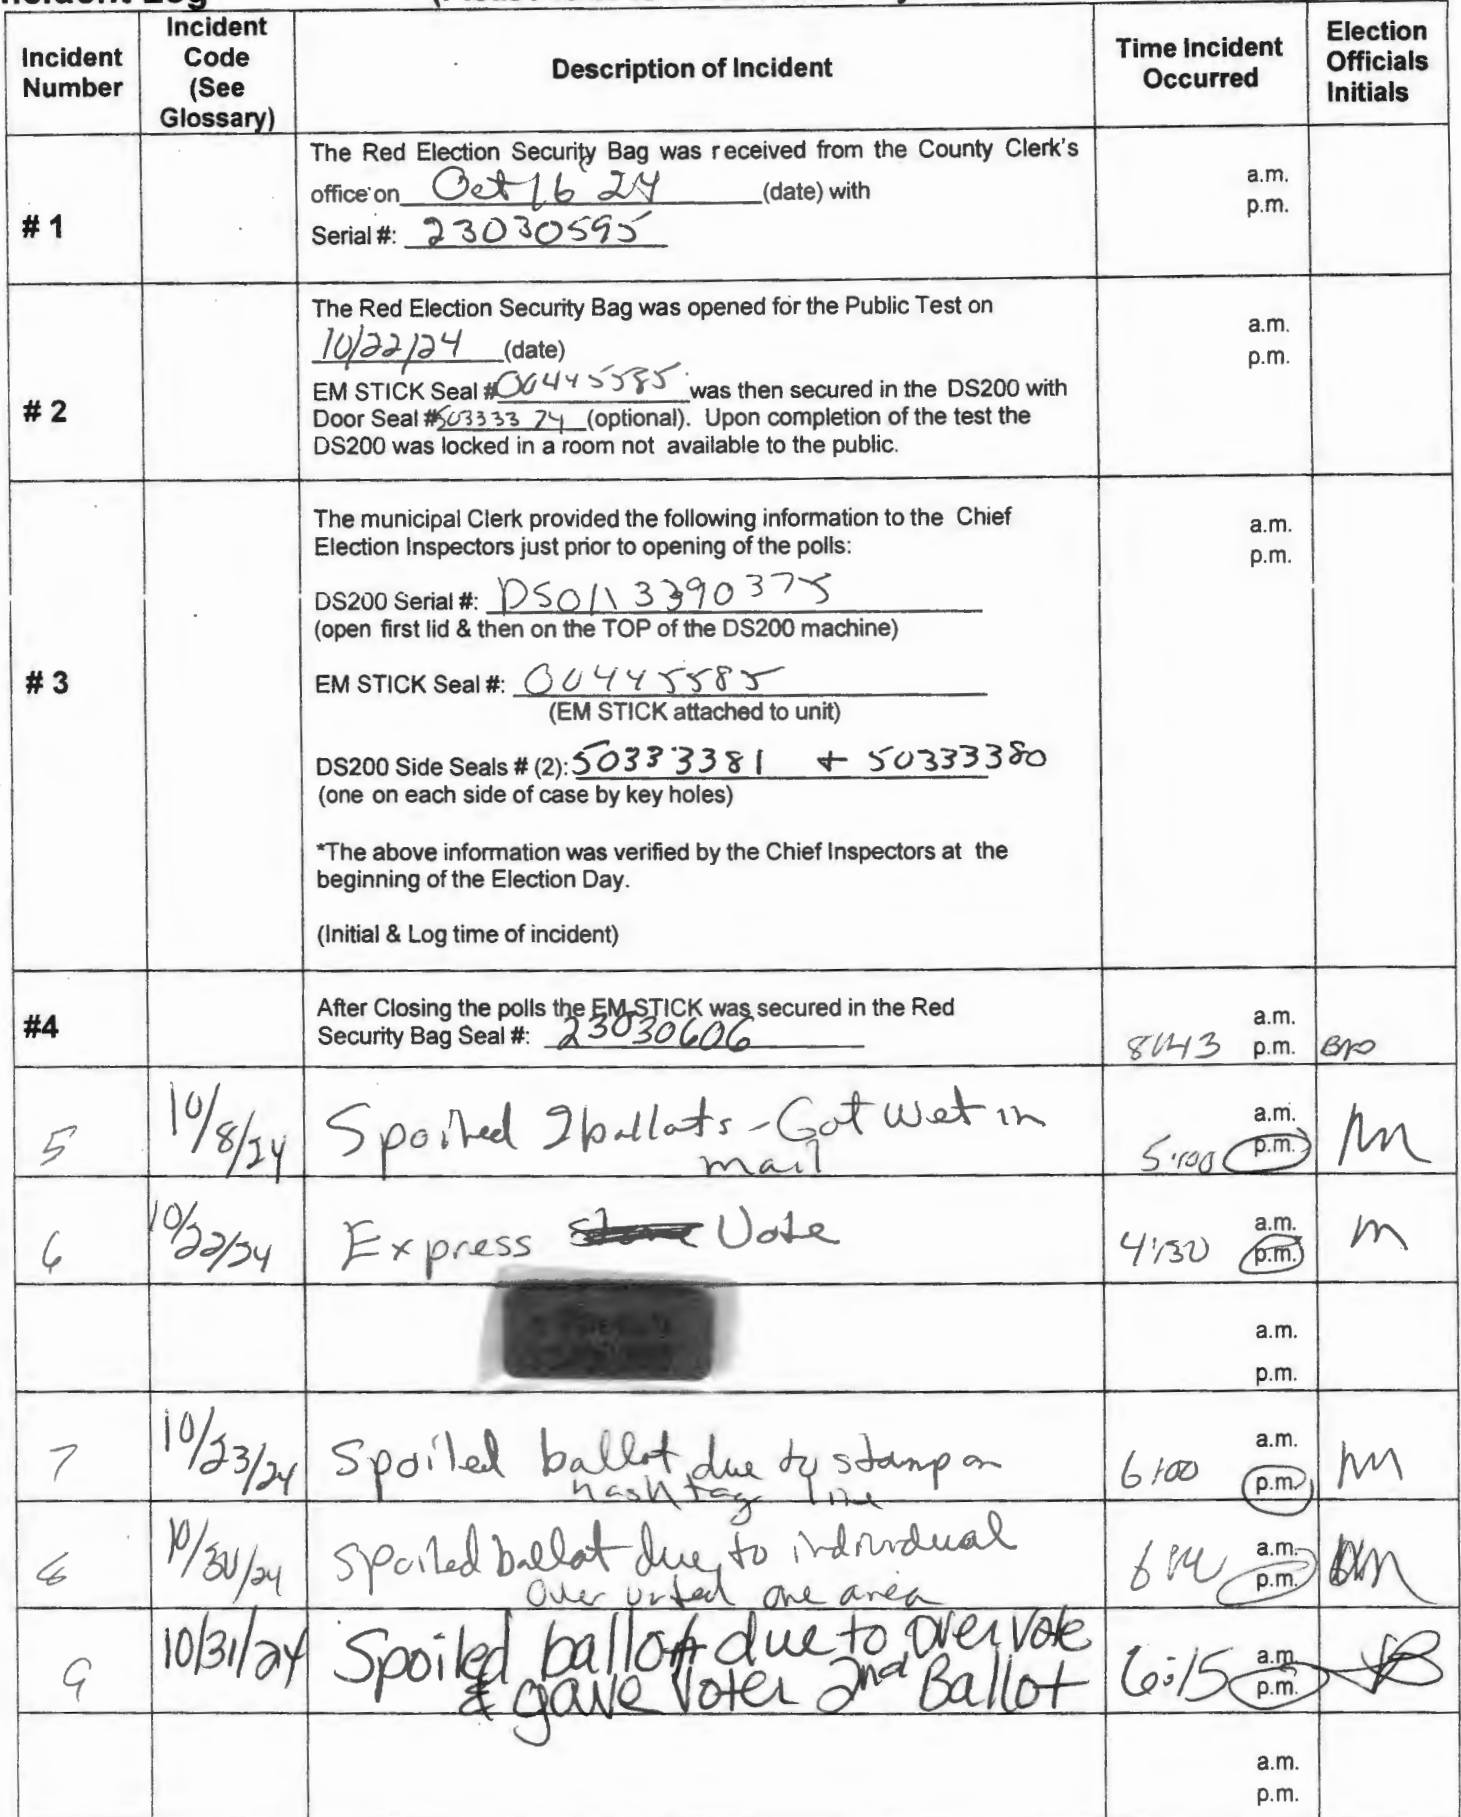 Incident Log
Incident Number
Incident Code (See Glossary)
Description of Incident
Time Incident Occurred
Election Officials Initials
# 1
The Red Election Security Bag was received from the County Clerk's
office on Oct 16 24 (date) with
Serial #: 23030595
a.m.
p.m.
# 2
The Red Election Security Bag was opened for the Public Test on
10/22/24 (date)
EM STICK Seal # 00445585 was then secured in the DS200 with
Door Seal # 50333374 (optional). Upon completion of the test the
DS200 was locked in a room not available to the public.
a.m.
p.m.
# 3
The municipal Clerk provided the following information to the Chief
Election Inspectors just prior to opening of the polls:
DS200 Serial #: DS0113390375
(open first lid & then on the TOP of the DS200 machine)
EM STICK Seal #: 00445585
(EM STICK attached to unit)
DS200 Side Seals # (2): 50333381 + 50333380
(one on each side of case by key holes)
*The above information was verified by the Chief Inspectors at the
beginning of the Election Day.
(Initial & Log time of incident)
a.m.
p.m.
#4
After Closing the polls the EM STICK was secured in the Red
Security Bag Seal #: 23030606
a.m.
8:43 p.m.
5
10/8/24
Spoiled 2 ballots - Got wet in
mail
a.m.
5:00 p.m.
6
10/22/24
Express Vote
a.m.
4:30 p.m.
a.m.
p.m.
7
10/23/24
Spoiled ballot due to stamp on
hash tag line
a.m.
6:00 p.m.
8
10/30/24
spoiled ballot due to individual
over voted one area
a.m.
p.m.
9
10/31/24
Spoiled ballot due to over vote
& gave voter 2nd Ballot
a.m.
6:15 p.m.
a.m.
p.m.